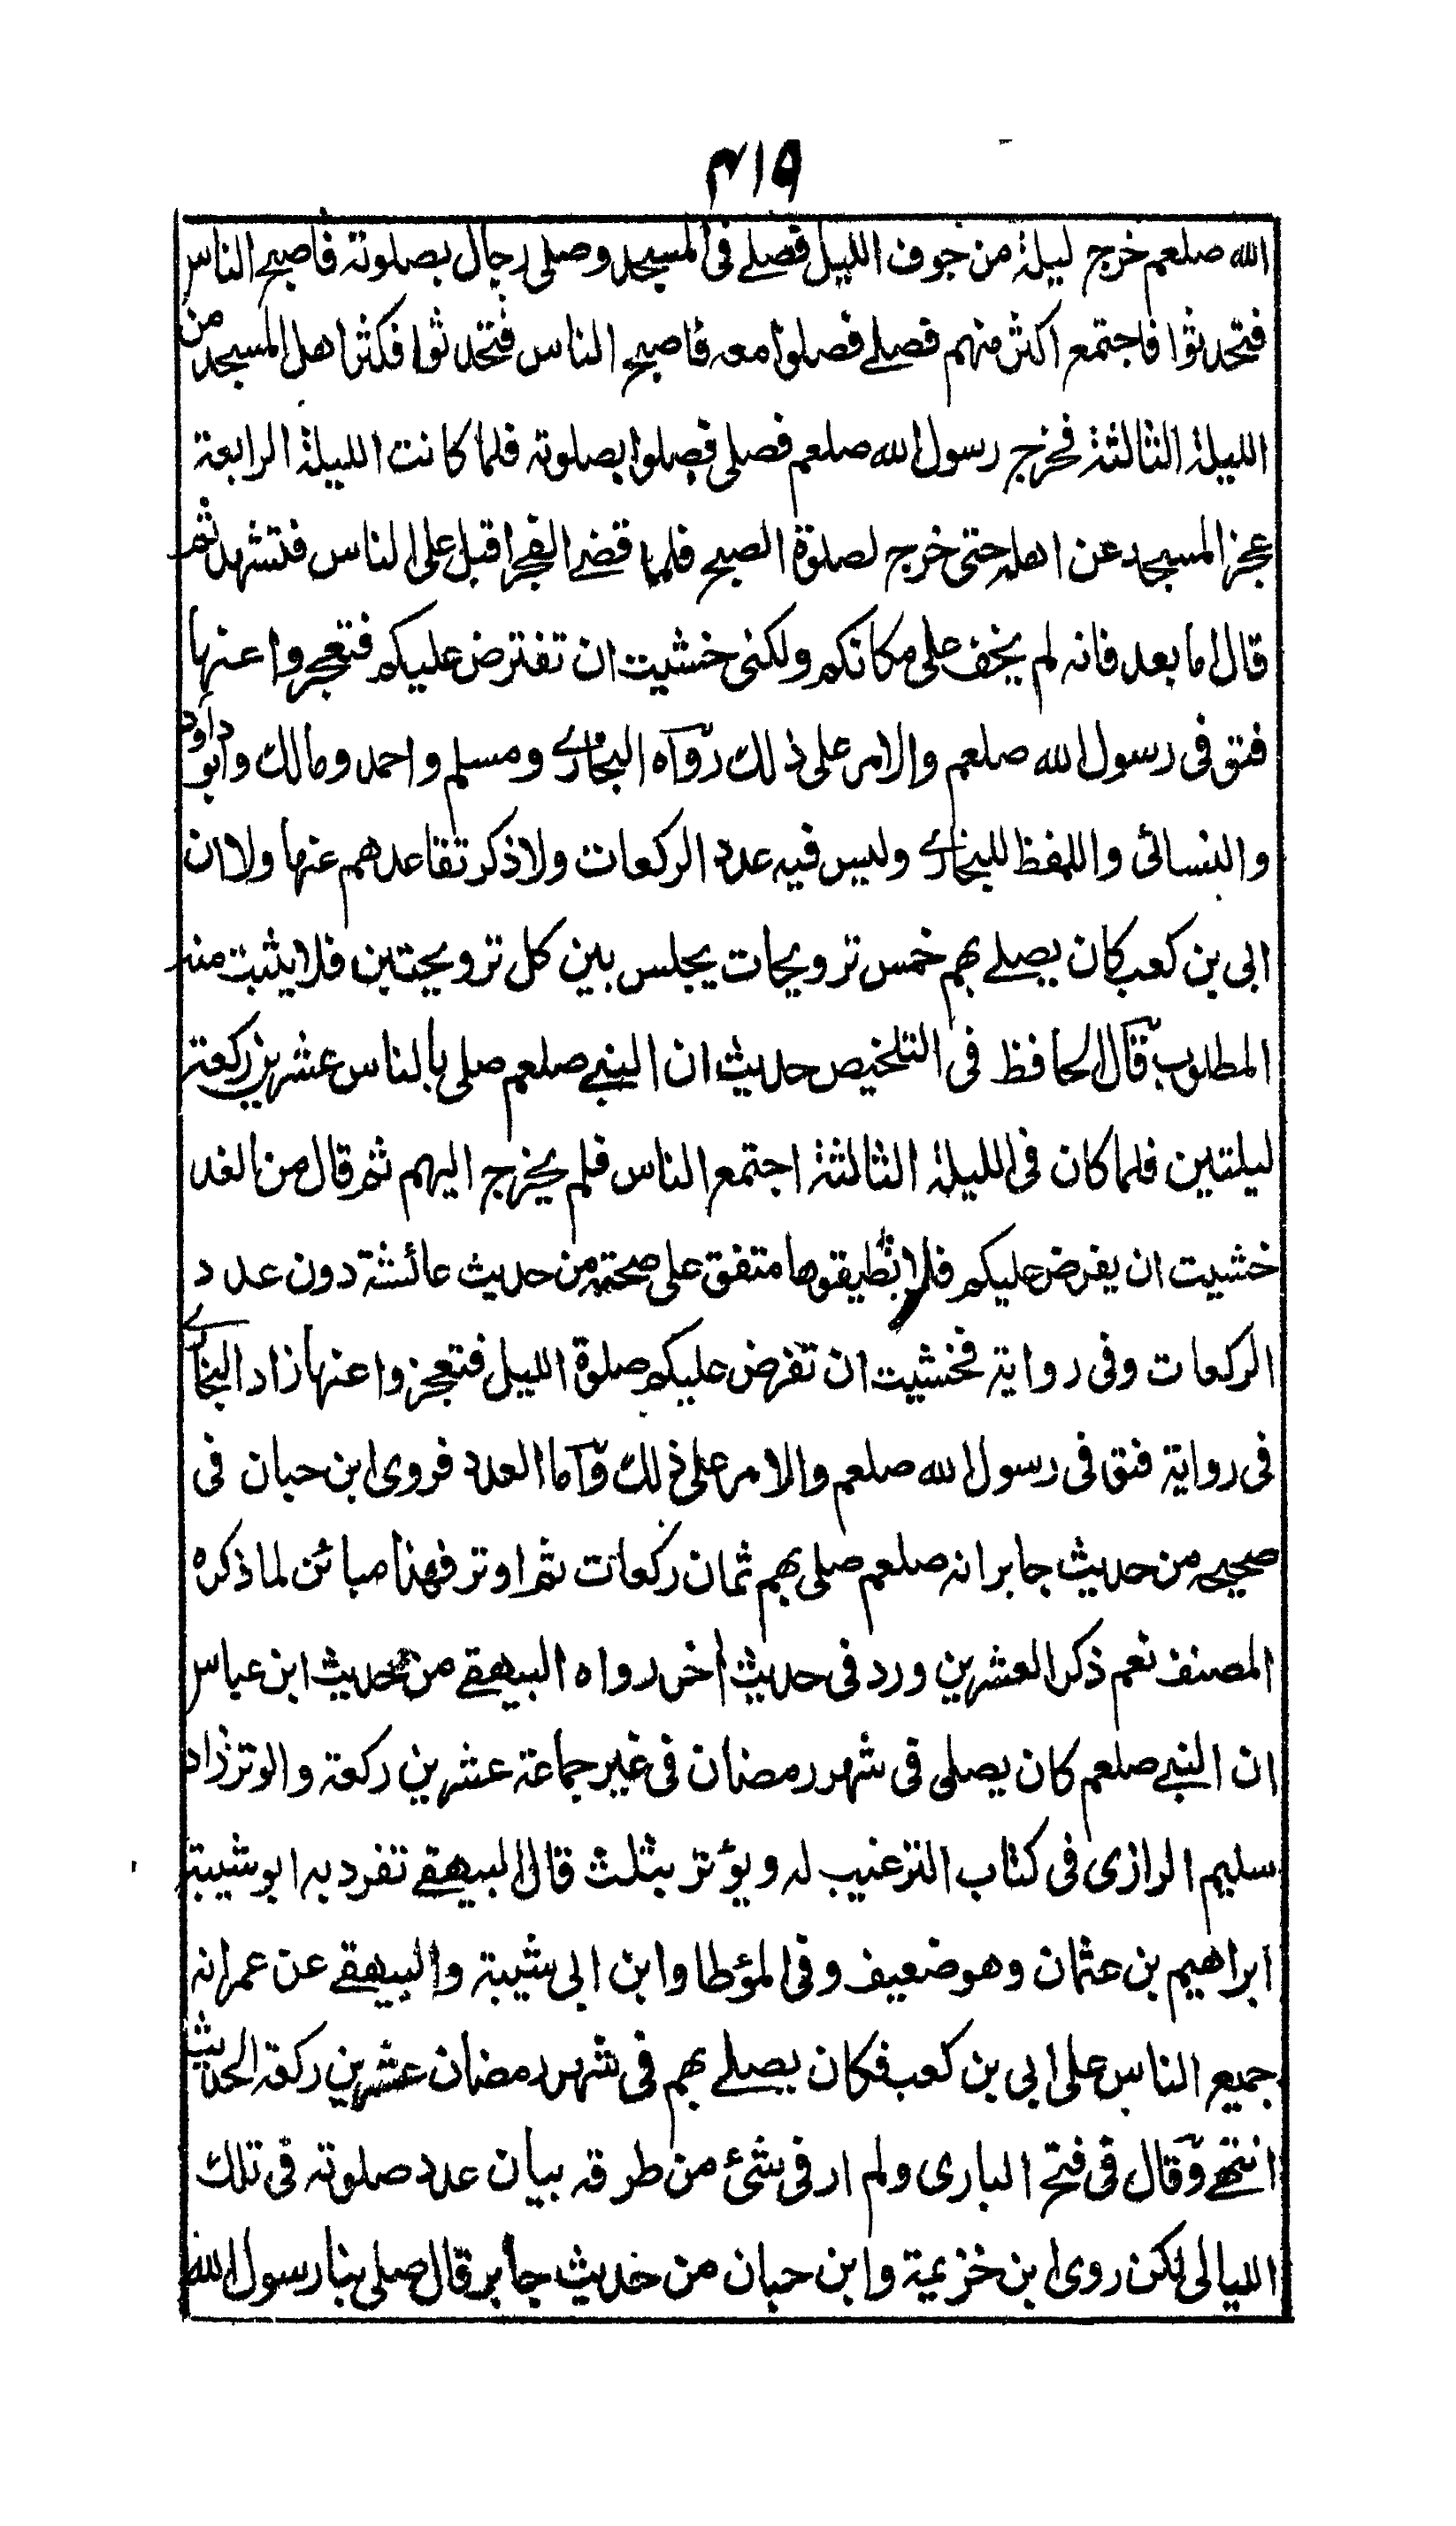 ۴۱۹
الله صلعم خرج ليلة من جوف الليل فصلے فى المسجد وصلى رجال بصلوته فاصبح الناس
فتحدثوا فاجتمع اكثر منهم فصلے فصلوا معه فاصبح الناس فتحدثوا فكثر اهل المسجد من
الليلة الثالثة فخرج رسول الله صلعم فصلى فصلوا بصلوته فلما كانت الليلة الرابعة
عجز المسجد عن اهله حتى خرج لصلوة الصبح فلما قضے الفجر اقبل على الناس فتشهد ثم
قال اما بعد فانه لم يخف على مكانكم ولكنى خشيت ان تفترض عليكم فتعجزوا عنها
فتوفى رسول الله صلعم والامر على ذلك رواه البخارے ومسلم واحمد ومالك وابو داود
والنسائى واللفظ للبخارے وليس فيه عدد الركعات ولا ذكر تقاعدهم عنها ولا ان
ابى بن كعب كان يصلے بهم خمس ترويحات يجلس بين كل ترويحتين فلا يثبت منه
المطلوب قال الحافظ فى التلخيص حديث ان النبے صلعم صلى بالناس عشرين ركعة
ليلتين فلما كان فى الليلة الثالثة اجتمع الناس فلم يخرج اليهم ثم قال من الغد
خشيت ان يفرض عليكم فلا تطيقوها متفق على صحته من حديث عائشة دون عدد
الركعات وفى رواية فخشيت ان تفرض عليكم صلوة الليل فتعجزوا عنها زاد البخارے
فى رواية فتوفى رسول الله صلعم والامر على ذلك واما العدد فروى ابن حبان فى
صحيحه من حديث جابر انه صلعم صلى بهم ثمان ركعات ثم اوتر فهذا مبائن لما ذكره
المصنف نعم ذكر العشرين ورد فى حديث اخر رواه البيهقے من حديث ابن عباس
ان النبے صلعم كان يصلى فى شهر رمضان فى غير جماعة عشرين ركعة والوتر زاد
سليم الرازى فى كتاب الترغيب له ويوتر بثلث قال البيهقے تفرد به ابو شيبة
ابراهيم بن عثمان وهو ضعيف وفى المؤطا وابن ابى شيبة والبيهقے عن عمر انه
جميع الناس على ابى بن كعب فكان يصلے بهم فى شهر رمضان عشرين ركعة الحديث
انتهے وقال فى فتح البارى ولم ار فى شئ من طرقه بيان عدد صلوته فى تلك
الليالى لكن روى ابن خزيمة وابن حبان من حديث جابر قال صلى بنا رسول الله